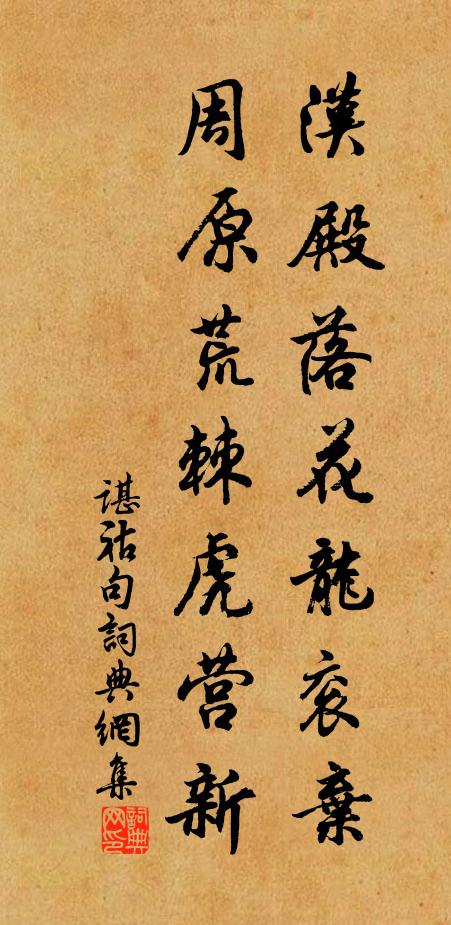 漢殿落花龍衮棄
周原荒棘虎營新
諶祜句詞典網集
詞典網印